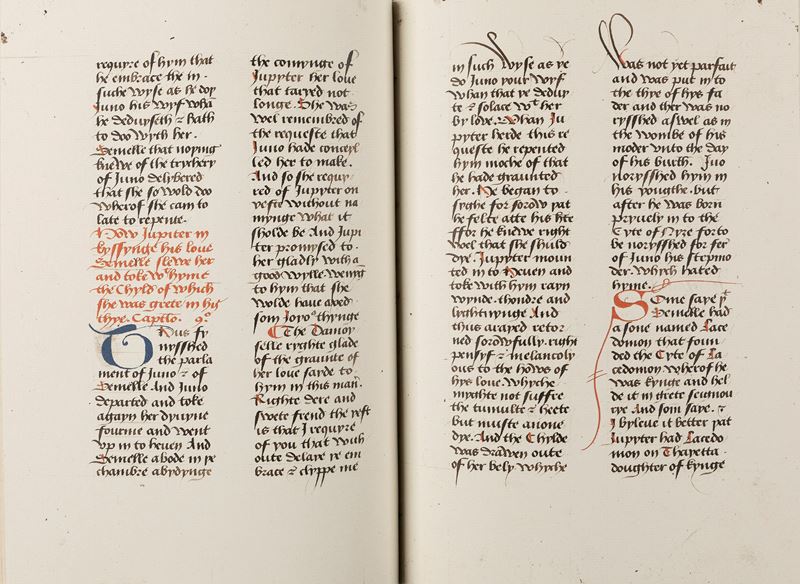 requyre of hym that
he embrace the in
suche wyse as he doþ
Juno his wyf whã
he deduyseth ⁊ hath
to doo wyth her.
Semelle that noyng
knewe of the trychery
of Juno delybered
that she so wold doo
wherof she cam to
late to repente.
How Jupiter in
kyssynge his love
Semelle slewe her
and toke wt hyme
the Chyld of which
she was grete in his
thye. Caplo. 9o.
Thus fy
nysshed
the parla
ment of Juno ⁊ of
Semelle And Juno
departed and toke
agayn her dyuyne
fourme and went
vp in to heuen And
Semelle abode in þe
chambre abydynge
the comynge of
Jupyter her loue
that taryed not
longe. She was
wel remembred of
the requeste that
Juno hade conceyl
led her to make.
And so she requy
red of Jupyter on
yefte without na
mynge what it
sholde be And Jupi
ter promysed to
her gladly with a
good wylle wenyng
to hym that she
wolde haue axed
som Joyos thynge
The Damoy
selle ryghte glade
of the graunte of
her loue sayde to
hym in this man.
Righte dere and
swete frend the yeft
is that I requyre
of you that with
oute delaye ye em
brace ⁊ clyppe me
in such wyse as ye
do Juno your wyf
whan that ye deduy
te ⁊ solace wt her
by love. Whan Ju
pyter herde this re
queste he repented
hym moche of that
he hade graunted
her. He began to
syghe for sorow þat
he felte atte his hte
ffor he knewe right
wel that she shuld
dye. Jupyter moun
ted in to Heuen and
toke with hym rayn
wynde. thondre and
lyghtnynge And
thus arayed retor
ned sorowfully. right
pensyf ⁊ melancoly
ous to the hows of
hys loue Whyche
myght not suffre
the tumulte ⁊ heete
but muste anone
dye. And the Chylde
was drawen oute
of her bely whyche
Was not yet parfait
and was put in to
the thye of hys fa
der and ther was no
rysshed aswel as in
the wombe of his
moder vnto the day
of his birth. Juo
norysshed hym in
his yougthe. but
after he was born
pryuely in to the
Cyte of Nyse for to
be norysshed for fer
of Juno his stepmo
der. Whych hated
hyme.
Some saye yt
Semelle had
a sone named Lace
domon that foun
ded the Cyte of La
cedomon wherof he
was kynge and hel
de it in grete seignou
rye And som saye. ⁊
I byleue it better þat
Jupyter had Lacedo
mon on Thayetta
doughter of kynge